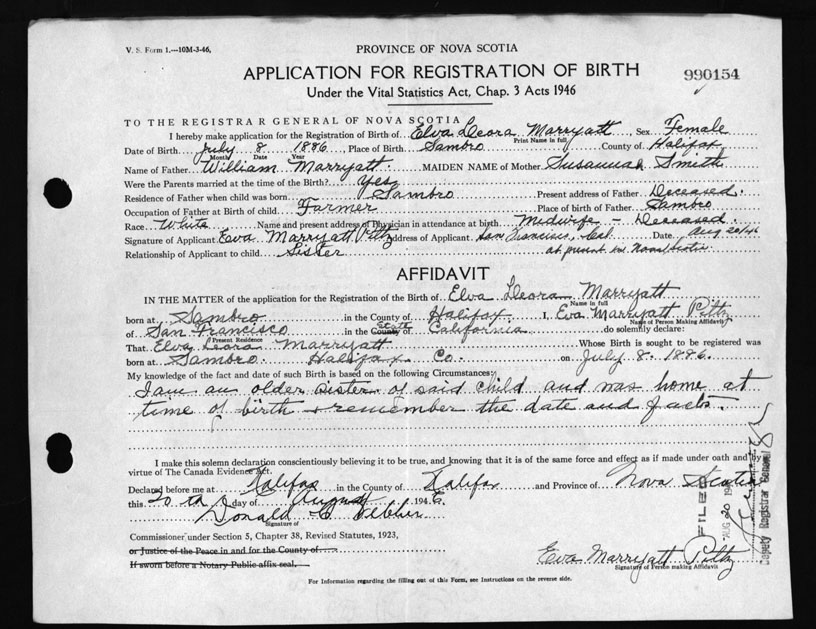 V. S. Form 1.—10M-3-46,
PROVINCE OF NOVA SCOTIA
APPLICATION FOR REGISTRATION OF BIRTH
990154
Under the Vital Statistics Act, Chap. 3 Acts 1946
TO THE REGISTRAR GENERAL OF NOVA SCOTIA
I hereby make application for the Registration of Birth of Elva Leora Marryatt, Sex Female
Print Name in full
Date of Birth July 8 1886 Place of Birth Sambro County of Halifax
Month Date Year
Name of Father William Marryatt. MAIDEN NAME of Mother Susannah Smith
Were the Parents married at the time of the Birth? Yes
Residence of Father when child was born Sambro Present address of Father Deceased.
Occupation of Father at Birth of child Farmer Place of birth of Father Sambro
Race White Name and present address of Physician in attendance at birth Midwife - Deceased.
Signature of Applicant Eva Marryatt Piltz Address of Applicant San Francisco, Cal. Date Aug 20/46
Relationship of Applicant to child Sister at present in Nova Scotia
AFFIDAVIT
IN THE MATTER of the application for the Registration of the Birth of Elva Leora Marryatt
Name in full
born at Sambro in the County of Halifax I, Eva Marryatt Piltz
Name of Person Making Affidavit
of San Francisco in the County State of California do solemnly declare:
Present Residence
That Elva Leora Marryatt Whose Birth is sought to be registered was
born at Sambro. Halifax Co. on July 8. 1886.
My knowledge of the fact and date of such Birth is based on the following Circumstances:
I am an older sister of said child and was home at
time of birth & remember the date and facts.
I make this solemn declaration conscientiously believing it to be true, and knowing that it is of the same force and effect as if made under oath and by
virtue of The Canada Evidence Act.
Declared before me at Halifax in the County of Halifax and Province of Nova Scotia
this 20th day of August 1946.
Donald
Signature of
Commissioner under Section 5, Chapter 38, Revised Statutes, 1923,
or Justice of the Peace in and for the County of
If sworn before a Notary Public affix seal.
Eva Marryatt Piltz
Signature of Person making Affidavit
For Information regarding the filling out of this Form, see Instructions on the reverse side.
FILED
AUG 20 194
Deputy Registrar General